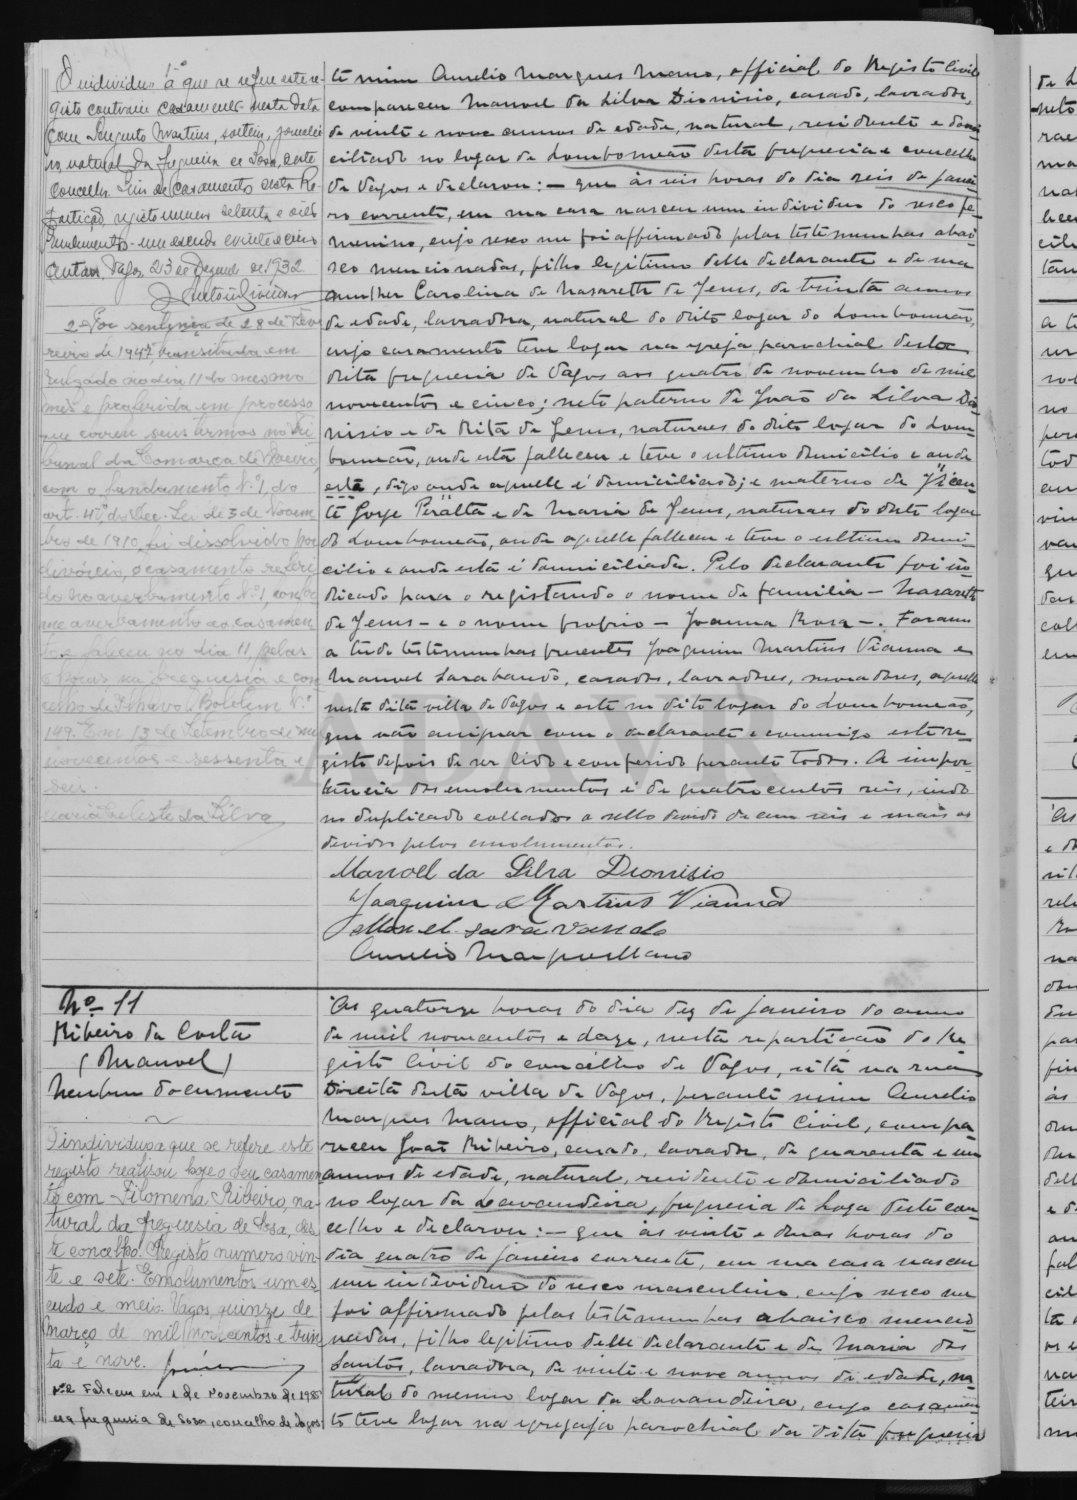 1º
O individuo a que se refere este re-
gisto contraiu casamento nesta data
com Augusto Martins, solteiro, jornalei
ro, natural da freguesia de Sosa, deste
concelho
Pardimento um escudo e vinte e cinco
centavos. Vagos, 23 de de 1932
2º Por sentença de 28 de Feve
reiro de 1947, transitada em
julgado no dia 11 do mesmo
mês e proferida em processo
que correu seus termos no Tri-
bunal da Comarca de Aveiro,
com o fundamento Nº 1, do
art. 4º, do Dec. Lei de 3 de Novem
bro de 1910, foi dissolvido por
divórcio, o casamento referi
do no averbamento Nº 1, confor
me averbamento ao casamen
to e faleceu no dia 11, pelas
horas na freguesia e con
celho de Ilhavo. Boletim Nº
149. Em 13 de Setembro de mil
novecentos e sessenta e
seis.
Maria Celeste da Silva
te mim Aurelio Marques Mano, official do Registo Civil
compareceu Manoel da Silva Dionisio, casado, lavrador,
de vinte e nove annos de edade, natural, residente e domi
ciliado no logar de Lombomeão desta freguesia e concelho
de Vagos e declarou: - que ás seis horas do dia seis de janei
ro corrente, em sua casa nasceu um individuo do sexo fe-
menino, cujo sexo me foi affirmado pelas testemunhas abai
xo mencionadas, filho legitimo delle declarante e de sua
mulher Carolina de Nasareth de Jesus, de trinta annos
de edade, lavradora, natural do dito logar do Lombomeão,
cujo casamento teve logar na egreja parochial desta
dita freguesia de Vagos aos quatro de novembro de mil
novecentos e cinco; neto paterno de João da Silva Dio
nisio e de Rita de Jesus, naturaes do dito logar do Lom-
bomeão, onde esta falleceu e teve o ultimo domicilio e onde
está, digo onde aquelle é domiciliado; e materno de Vicen-
te Jorge Peralta e de Maria de Jesus, naturaes do dito logar
do Lombomeão, onde aquelle falleceu e teve o ultimo domi
cilio e onde esta é domiciliada. Pelo declarante foi in-
dicado para o registando o nome de familia - Nasareth
de Jesus - e o nome proprio - Joanna Rosa -. Foram
a tudo testemunhas presentes Joaquim Martins Vianna e
Manoel Sarabando, casados, lavradores, moradores, aquelle
nesta dita villa de Vagos e este no dito logar do Lombomeão,
que vão assignar com o declarante e commigo este re-
gisto depois de ser lido e conferido perante todos. A impor-
tancia dos emolumentos é de quatrocentos reis, indo
no duplicado collados o sello devido de cem reis e mais os
devidos pelos emolumentos.
Manoel da Silva Dionisio
Joaquim Martins Vianna
Manoel Sarabando
Aurelio Marques Mano
Nº 11
Ribeiro da Costa
(Manoel)
Nenhum documento
O individuo a que se refere este
registo realizou hoje o seu casamen
to com Filomena Ribeiro, na-
tural da freguesia de Sosa, des
te concelho. Registo numero vin-
te e sete. Emolumentos um es-
cudo e meio. Vagos, quinze de
março de mil novecentos e trin
ta e nove.
Nº 2 Faleceu em 1 de Novembro de 1985
na freguesia de Sosa, concelho de Vagos
As quatorze horas do dia dez de janeiro do anno
de mil novecentos e doze, nesta repartição do Re
gisto Civil do concelho de Vagos, sita na rua
Direita desta villa de Vagos, perante mim Aurelio
Marques Mano, official do Registo Civil, compa-
receu João Ribeiro, casado, lavrador, de quarenta e um
annos de edade, natural, residente e domiciliado
no logar da Lavandeira, freguesia de Soza deste con-
celho e declarou: - que ás vinte e duas horas do
dia quatro de janeiro corrente, em sua casa nasceu
um individuo do sexo masculino, cujo sexo me
foi affirmado pelas testemunhas abaixo mencio
nadas, filho legitimo delle declarante e de Maria dos
Santos, lavradora, de vinte e nove annos de edade, na
tural do mesmo logar da Lavandeira, cujo casamen
to teve logar na egreja parochial da dita freguesia
ADAVR